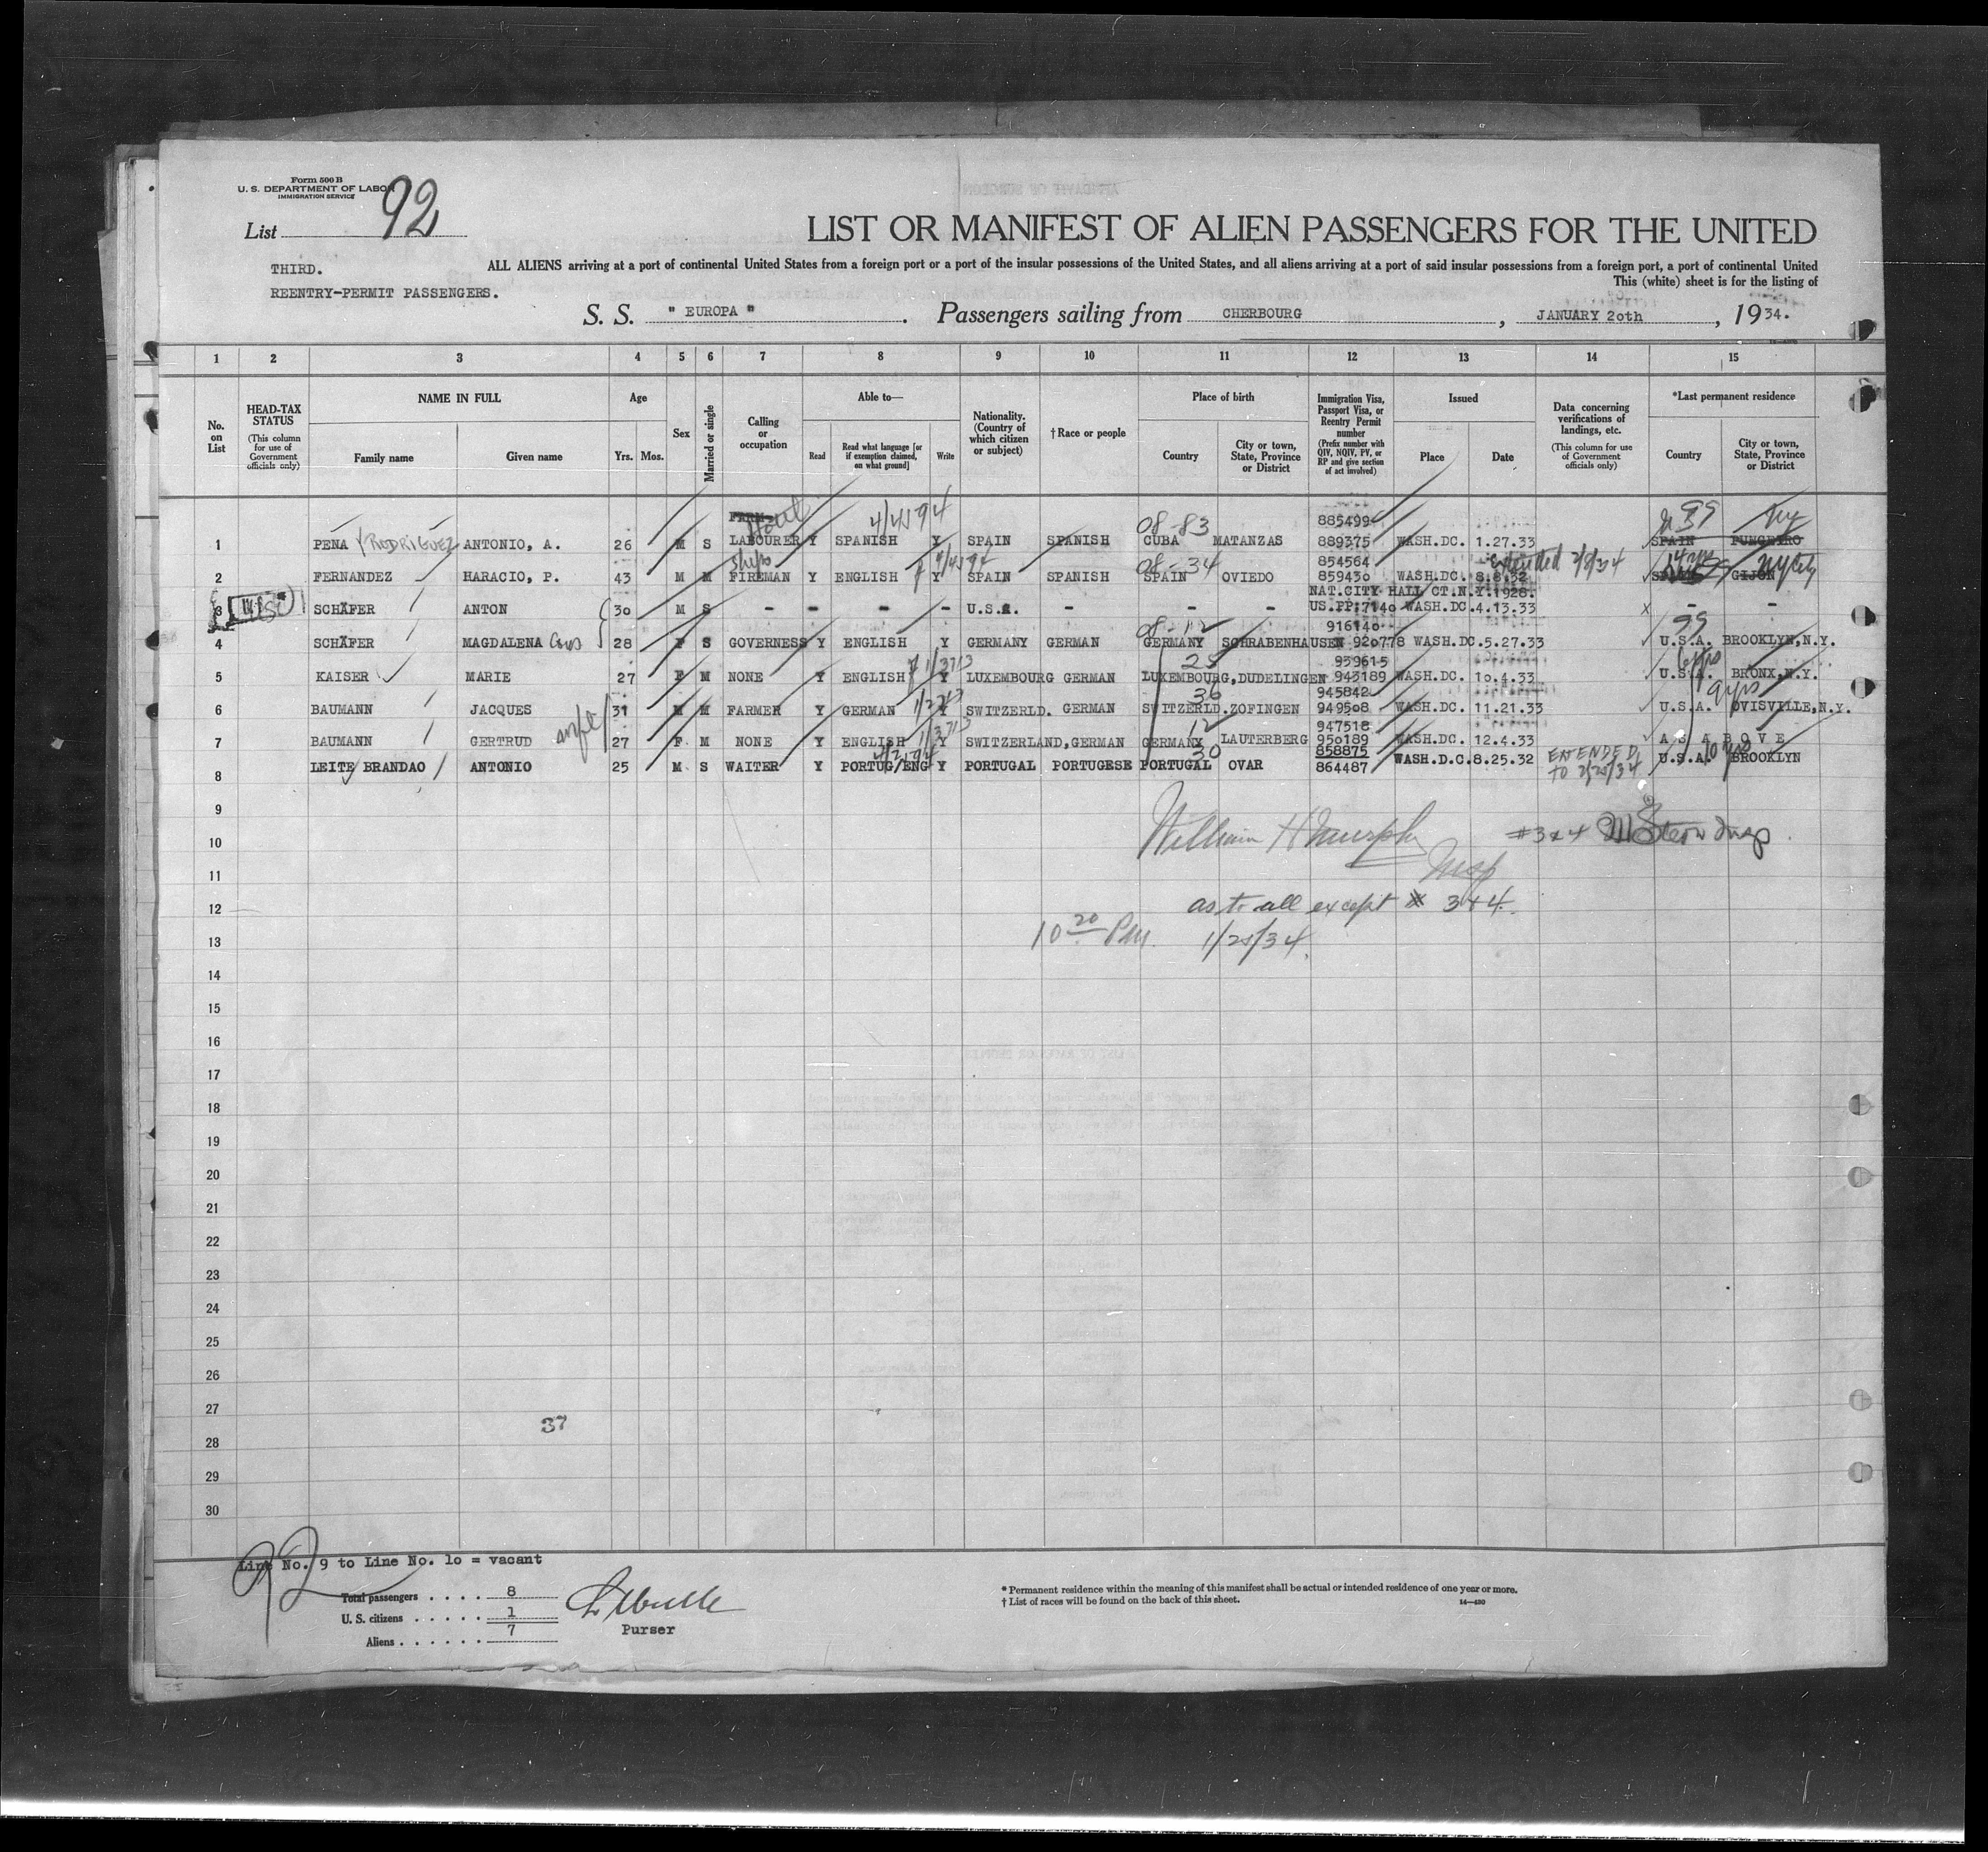 Form 500 B
U. S. DEPARTMENT OF LABOR
IMMIGRATION SERVICE
List 92
LIST OR MANIFEST OF ALIEN PASSENGERS FOR THE UNITED
THIRD.
REENTRY-PERMIT PASSENGERS.
ALL ALIENS arriving at a port of continental United States from a foreign port or a port of the insular possessions of the United States, and all aliens arriving at a port of said insular possessions from a foreign port, a port of continental United
This (white) sheet is for the listing of
S. S. " EUROPA " . Passengers sailing from CHERBOURG , JANUARY 2oth , 1934.
1 2 3 4 5 6 7 8 9 10 11 12 13 14 15
No. on List
HEAD-TAX STATUS
(This column for use of Government officials only)
NAME IN FULL
Family name Given name
Age
Yrs. Mos.
Sex
Married or single
Calling or occupation
Able to—
Read Read what language [or if exemption claimed, on what ground] Write
Nationality. (Country of which citizen or subject)
† Race or people
Place of birth
Country City or town, State, Province or District
Immigration Visa, Passport Visa, or Reentry Permit number
(Prefix number with QIV, NQIV, PV, or RP and give section of act involved)
Issued
Place Date
Data concerning verifications of landings, etc.
(This column for use of Government officials only)
*Last permanent residence
Country City or town, State, Province or District
FARM- 4/4194 08-83 885499 99 NY
1 PENA Y RODRIGUEZ ANTONIO, A. 26 M S LABOURER Y SPANISH Y SPAIN SPANISH CUBA MATANZAS 889375 WASH.DC. 1.27.33 SPAIN PUNGEYRO
ships 08-34 854564 Extended 2/8/34 14 yrs
2 FERNANDEZ HARACIO, P. 43 M M FIREMAN Y ENGLISH Y SPAIN SPANISH SPAIN OVIEDO 859430 WASH.DC. 8.8.32 GIJON
NAT.CITY HALL CT.N.Y.1928.
3 SCHÄFER ANTON 30 M S - - - - U.S.A. - - - US.PP:7140 WASH.DC.4.13.33 x - -
08-12 916140 99
4 SCHÄFER MAGDALENA 28 F S GOVERNESS Y ENGLISH Y GERMANY GERMAN GERMANY SCHRABENHAUSEN 920778 WASH.DC.5.27.33 U.S.A. BROOKLYN,N.Y.
1/3713 25 939615 6 yrs
5 KAISER MARIE 27 F M NONE Y ENGLISH Y LUXEMBOURG GERMAN LUXEMBOURG,DUDELINGEN 943189 WASH.DC. 10.4.33 U.S.A. BRONX,N.Y.
36 945842 9 yrs
6 BAUMANN JACQUES 31 M M FARMER Y GERMAN Y SWITZERLD. GERMAN SWITZERLD.ZOFINGEN 949508 WASH.DC. 11.21.33 U.S.A. OVISVILLE,N.Y.
1/3713 12 947518
7 BAUMANN GERTRUD 27 F M NONE Y ENGLISH Y SWITZERLAND,GERMAN GERMANY LAUTERBERG 950189 WASH.DC. 12.4.33 A S A B O V E
30 858875 EXTENDED 10 yrs
8 LEITE BRANDAO ANTONIO 25 M S WAITER Y PORTUG/ENG Y PORTUGAL PORTUGESE PORTUGAL OVAR 864487 WASH.D.C.8.25.32 TO 2/25/34 U.S.A. BROOKLYN
9
William H Murphy #3&4 M Stern Insp
10
11 Insp
12 as to all except # 3+4.
13 10 20 PM. 1/25/34.
14
15
16
17
18
19
20
21
22
23
24
25
26
27
37
28
29
30
Line No. 9 to Line No. 1o = vacant
92
Total passengers . . . . 8
U. S. citizens . . . . . 1
Aliens . . . . . . 7
Purser
* Permanent residence within the meaning of this manifest shall be actual or intended residence of one year or more.
† List of races will be found on the back of this sheet.
14—430